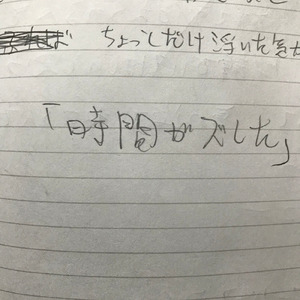 ちょっとだけ浮いた気
「時間がズした」